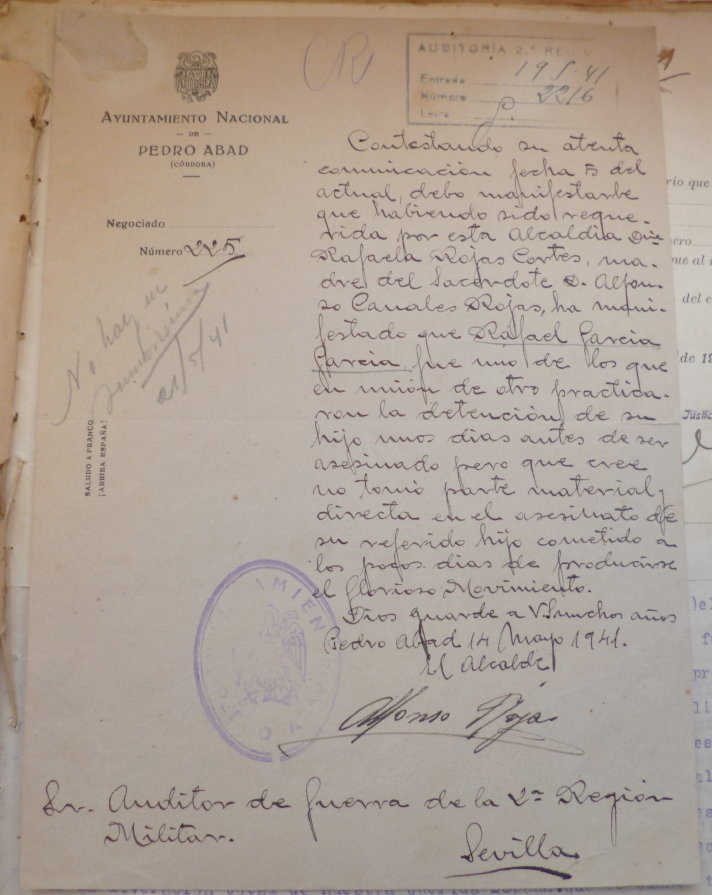 AYUNTAMIENTO NACIONAL
DE
PEDRO ABAD
(CÓRDOBA)
Negociado
Número 225
AUDITORÍA 2.ª REGIÓN
Entrada 19 5 41
Número 2216
Letra
No hay
21/5/41
SALUDO A FRANCO
¡ARRIBA ESPAÑA!
Contestando su atenta
comunicación fecha 5 del
actual, debo manifestarle
que habiendo sido reque-
rida por esta Alcaldia Dña
Rafaela Rojas Cortes, ma-
dre del Sacerdote D. Alfon-
so Canales Rojas, ha mani-
festado que Rafael Garcia
Garcia, fue uno de los que
en unión de otro practica-
ron la detención de su
hijo unos dias antes de ser
asesinado pero que cree
no tomó parte material y
directa en el asesinato de
su referido hijo cometido a
los pocos dias de producirse
el Glorioso Movimiento.
Dios guarde a V.S. muchos años
Pedro Abad 14 Mayo 1941.
El Alcalde
Alfonso Rojas
Sr. Auditor de Guerra de la 2ª Región
Militar.
Sevilla